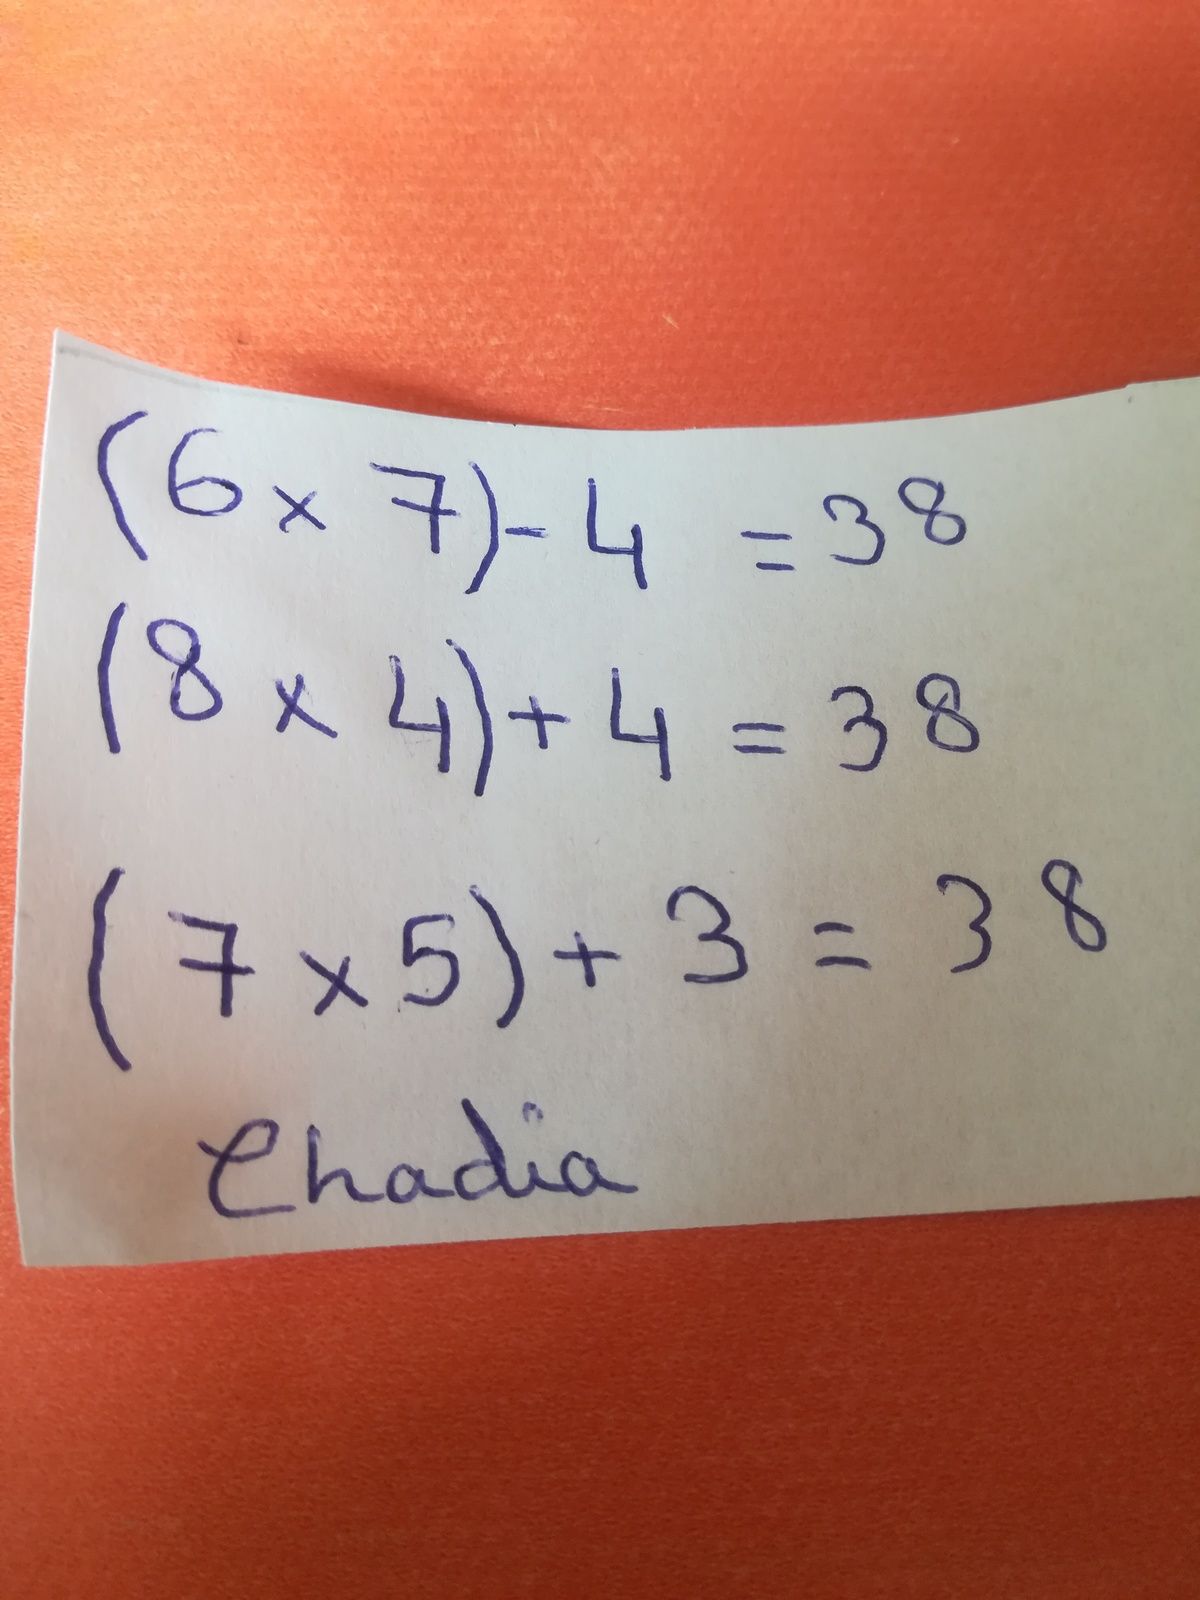 (6 x 7) - 4 = 38
(8 x 4) + 4 = 38
(7 x 5) + 3 = 38
Chadia